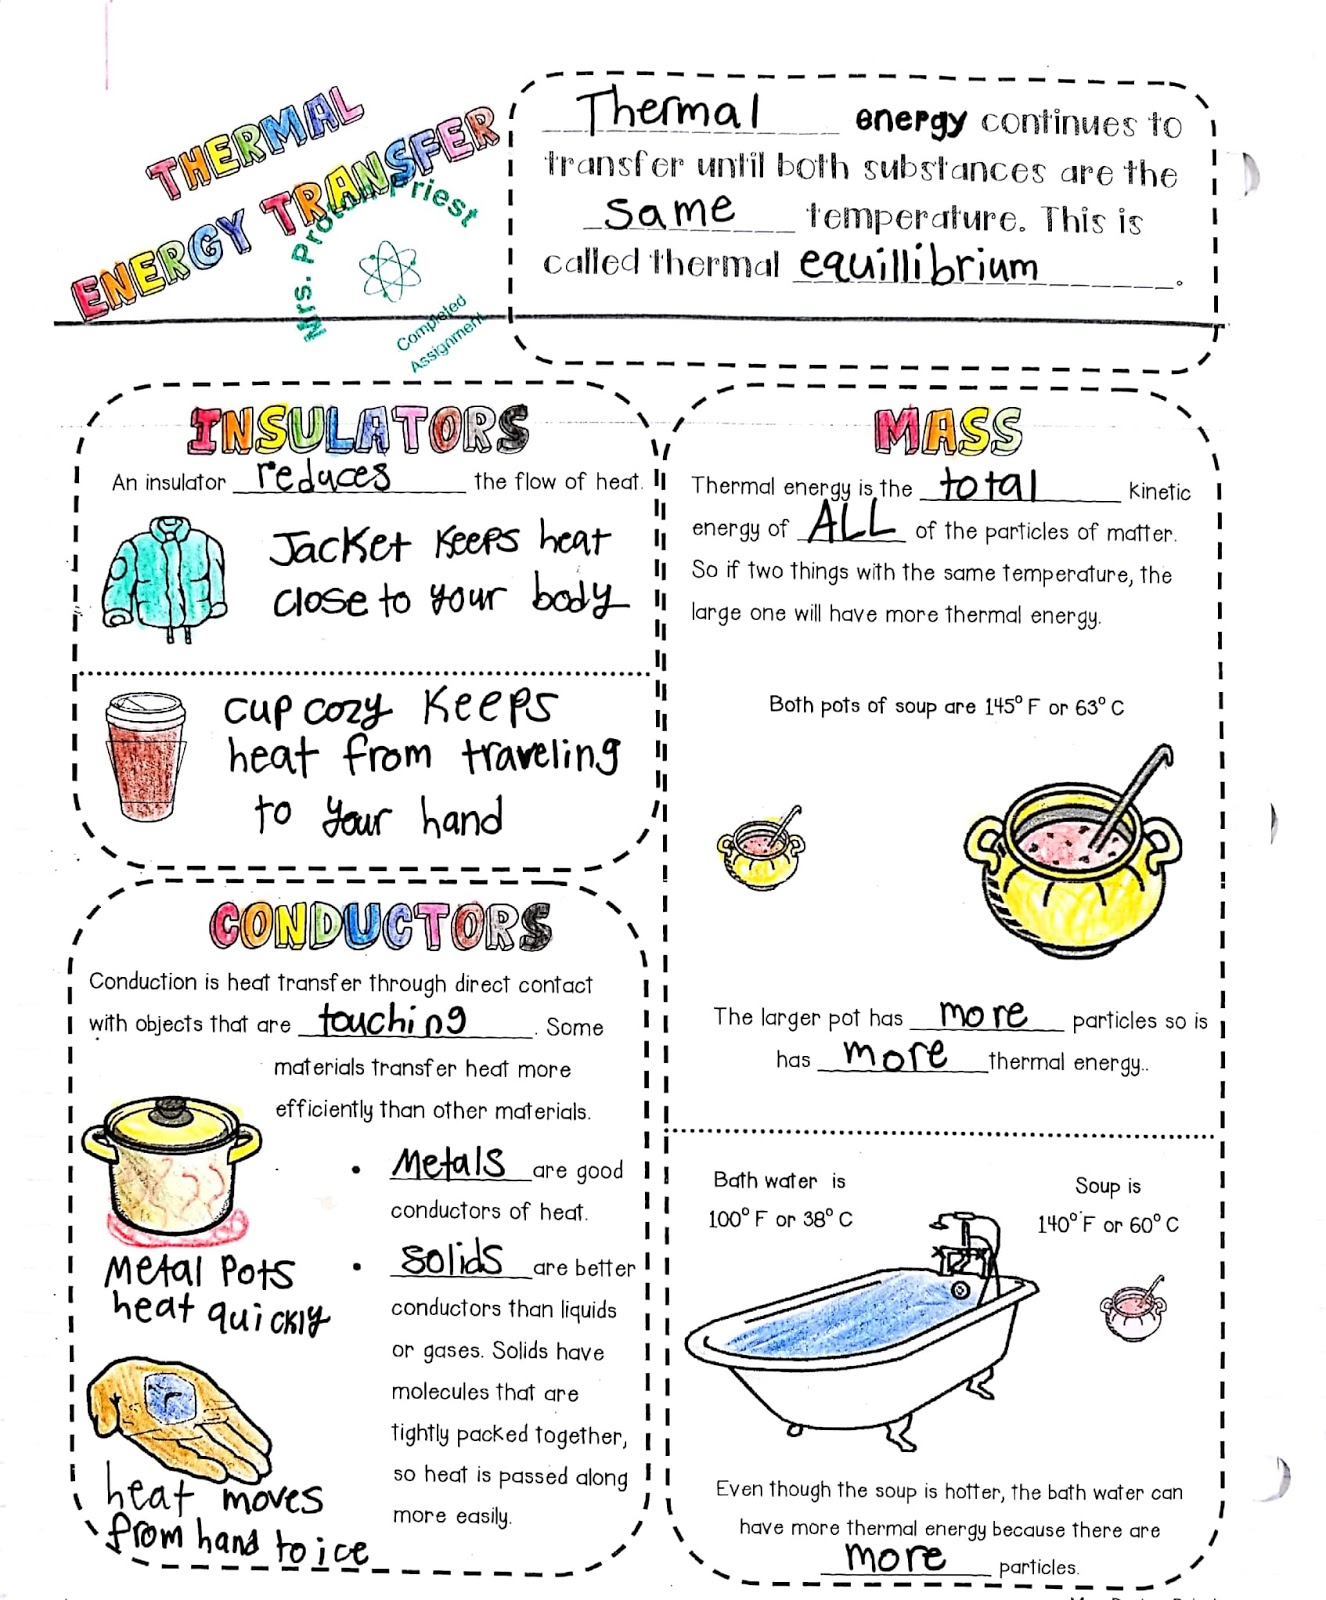 THERMAL
ENERGY TRANSFER
Mrs. Proton Priest
Completed
Assignment
Thermal energy continues to
transfer until both substances are the
same temperature. This is
called thermal equillibrium.
INSULATORS
An insulator reduces the flow of heat.
Jacket keeps heat
close to your body
cup cozy keeps
heat from traveling
to your hand
CONDUCTORS
Conduction is heat transfer through direct contact
with objects that are touching. Some
materials transfer heat more
efficiently than other materials.
• Metals are good
conductors of heat.
• Solids are better
conductors than liquids
or gases. Solids have
molecules that are
tightly packed together,
so heat is passed along
more easily.
Metal Pots
heat quickly
heat moves
from hand to ice
MASS
Thermal energy is the total kinetic
energy of ALL of the particles of matter.
So if two things with the same temperature, the
large one will have more thermal energy.
Both pots of soup are 145° F or 63° C
The larger pot has more particles so is
has more thermal energy..
Bath water is
100° F or 38° C
Soup is
140° F or 60° C
Even though the soup is hotter, the bath water can
have more thermal energy because there are
more particles.